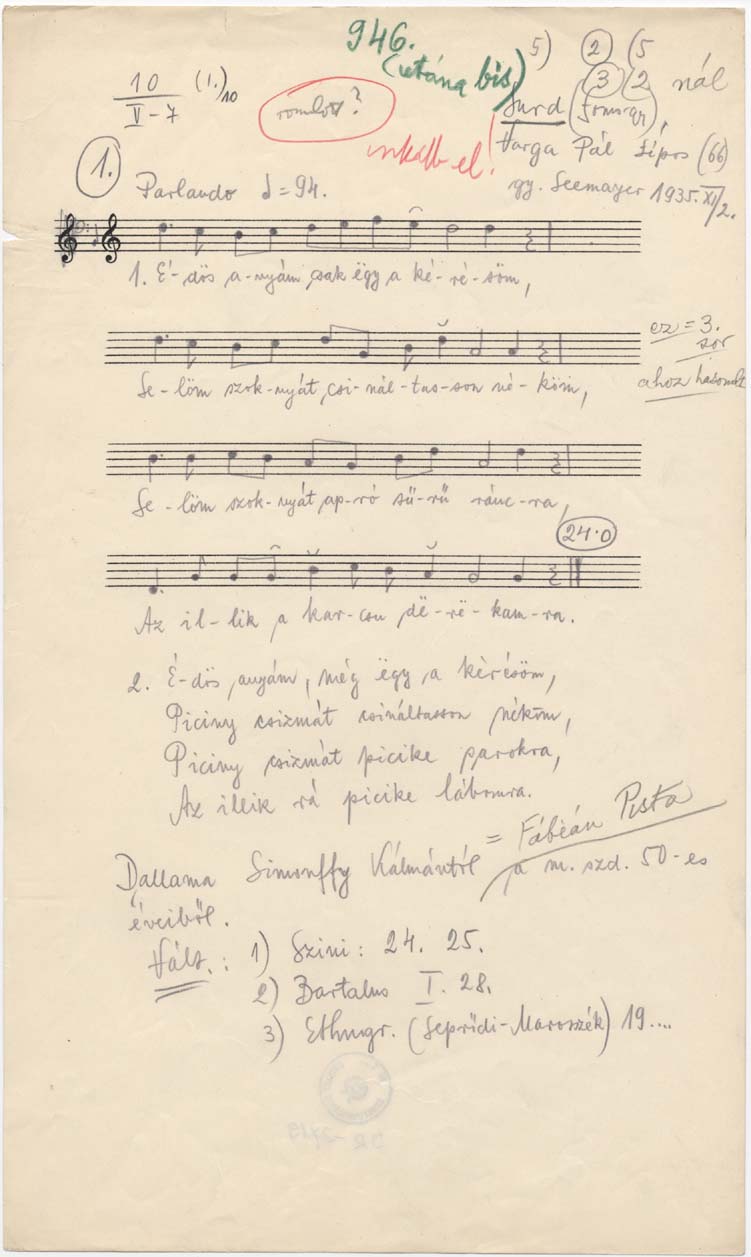 946.
(utána bis)
5) 2 (5
3 (2 nál
10 (1.) 10
V-7
romlott?
inkább el!
Surd (Somogy),
Varga Pál Lípos (66)
gy. Seemayer 1935. XI/2.
1.
Parlando ♩=94.
1. É-dös a-nyám csak ëgy a ké-ré-söm,
ez = 3.
sor
ahoz hasonult
Se-löm szok-nyát csi-nál-tas-son né-köm,
Se-löm szok-nyát ap-ró sű-rű ránc-ra,
24·0
Az il-lik a kar-csu dë-rë-kam-ra.
2. É-dös anyám, még ëgy a kérésöm,
Piciny csizmát csináltasson néköm,
Piciny csizmát picike sarokra,
Az illik rá picike lábomra.
= Fábián Pista
Dallama Simonffy Kálmántól a m. szd. 50-es
éveiből.
Vált.: 1) Szini: 24. 25.
2) Bartalus I. 28.
3) Ethngr. (Seprődi-Marosszék) 19....